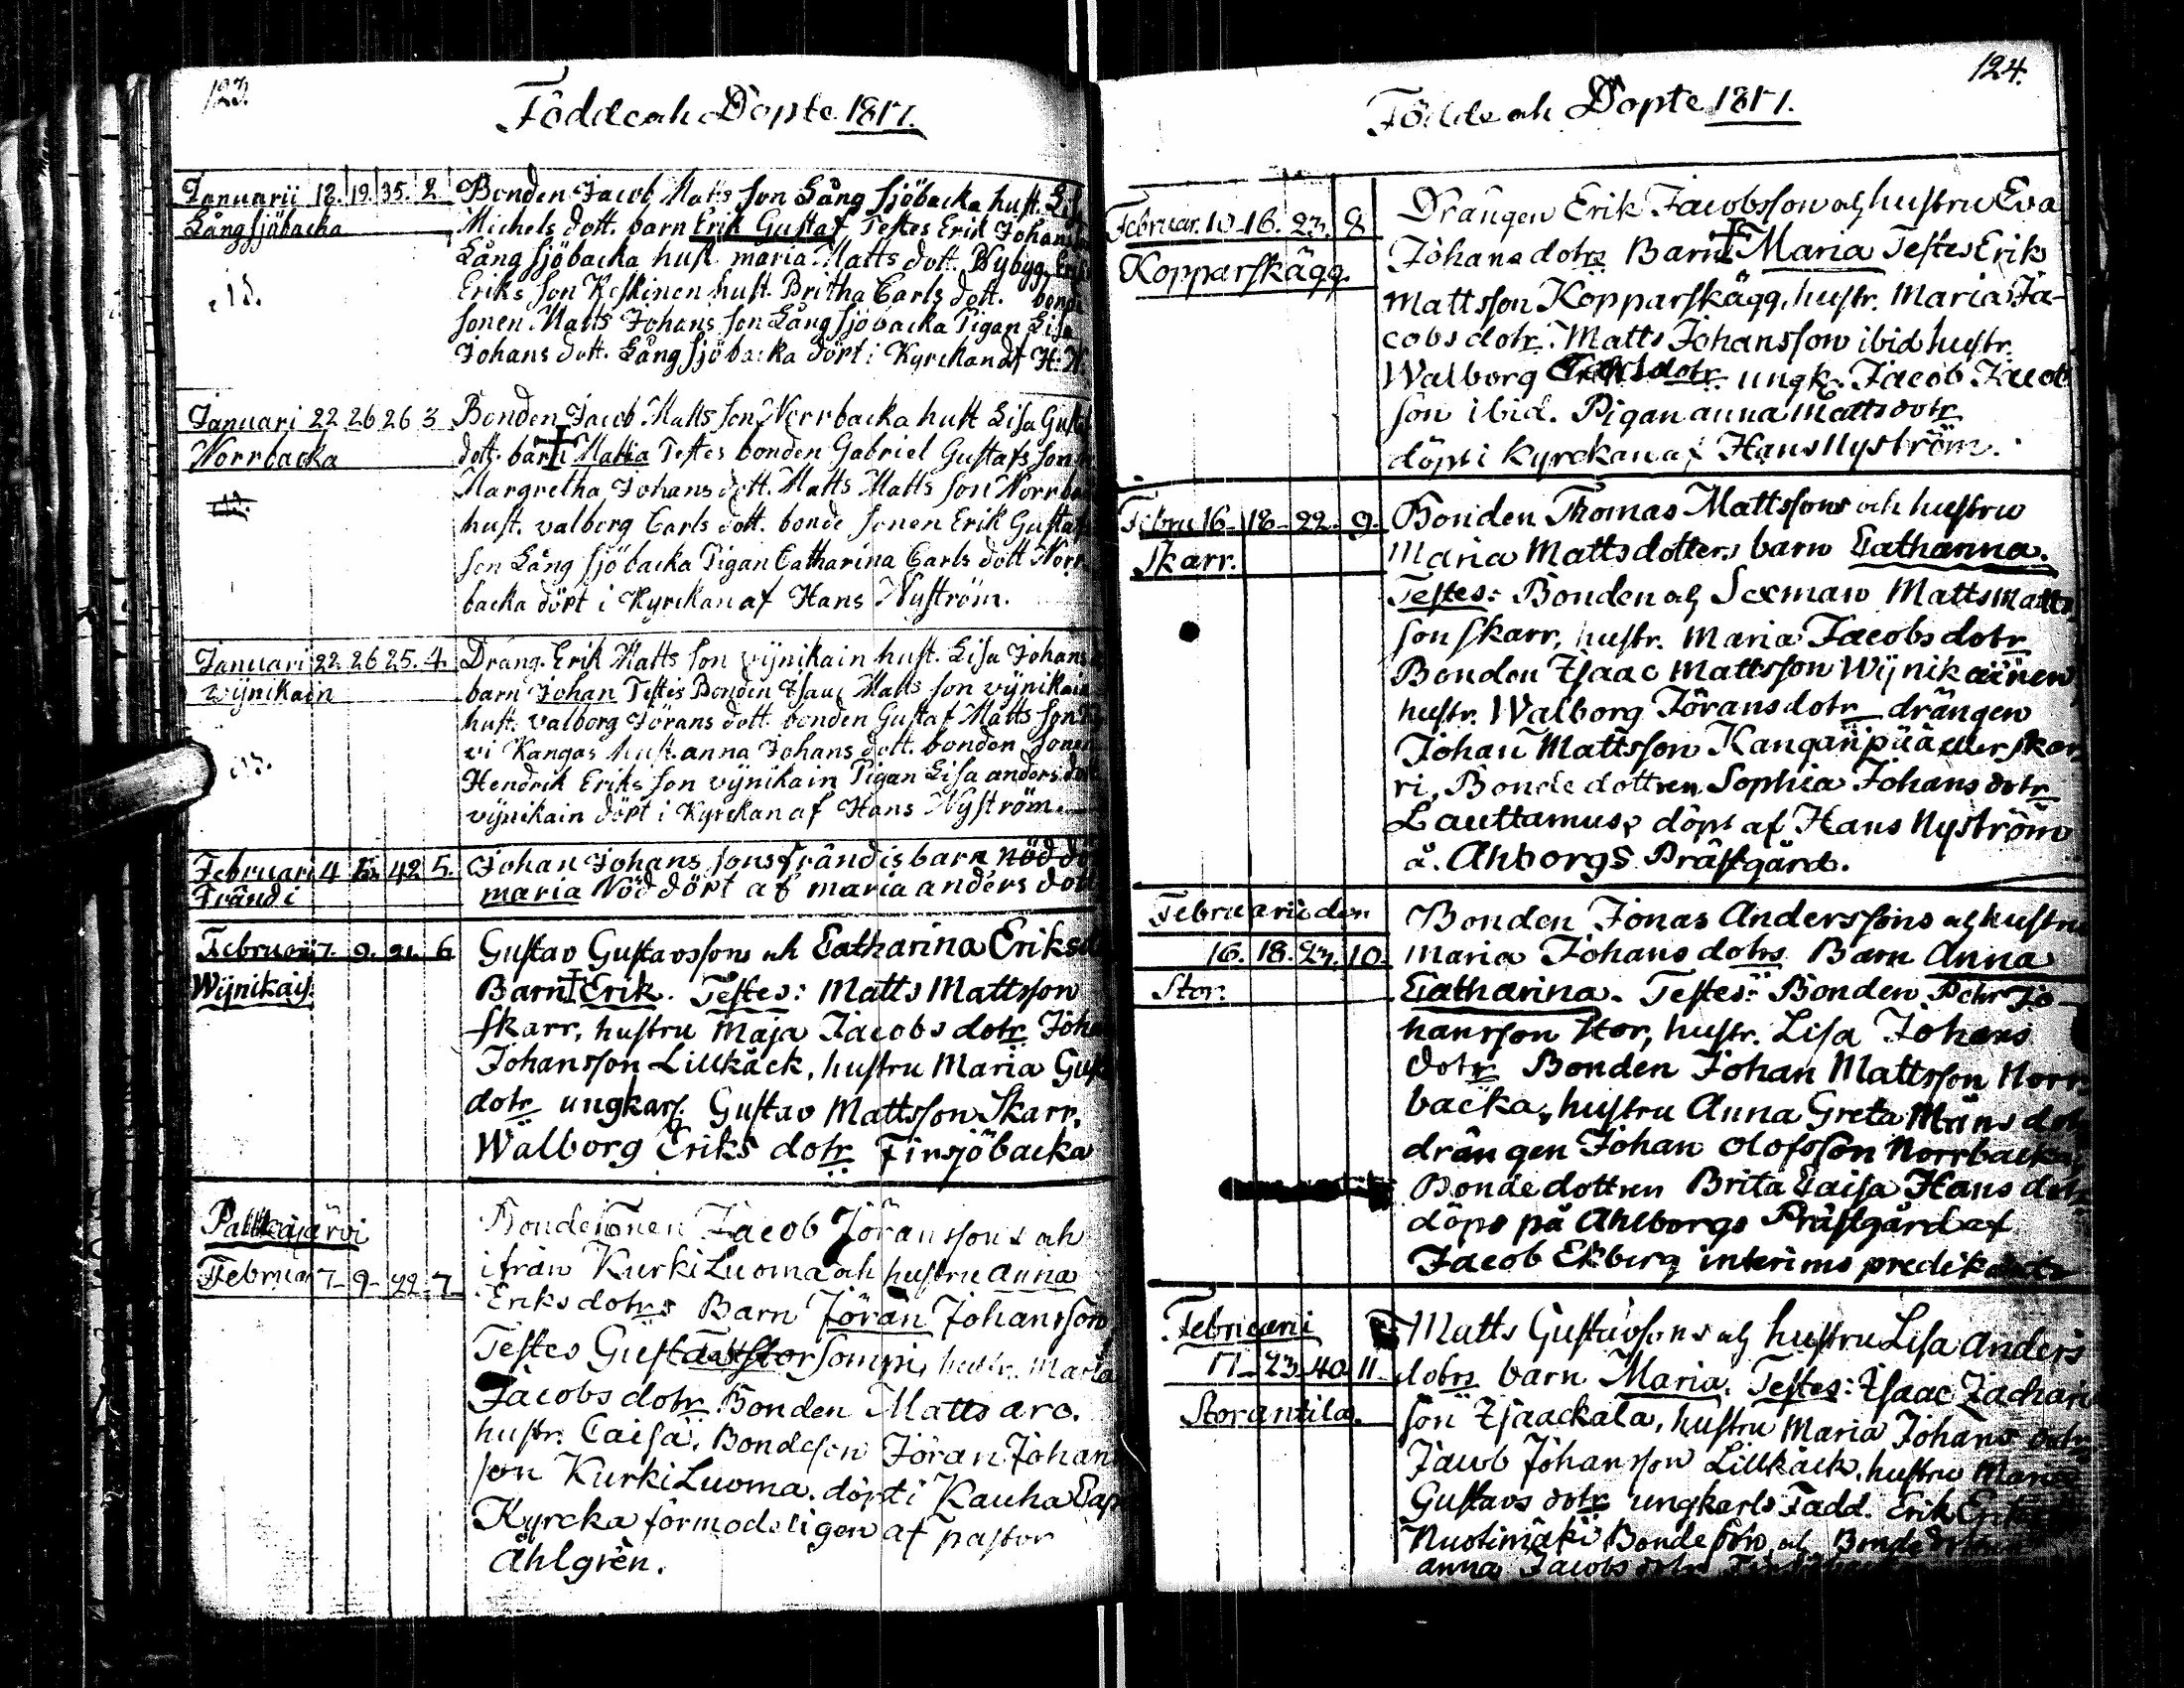 123.
Födde och Döpte 1811.
Januarii 18. 19. 35. 2. Bonden Jacob Matts son Lång sjöbacka hust.
Långsjöbacka Michels dott. barn Erik Gustaf Testes Erik Johans
Lång sjöbacka hust maria Matts dott. Nybygg.
Eriks son Keskinen hust. Britha Carls dott. bonde
sonen Matts Johans son Lång sjöbacka Pigan Lisa
Johans dott. Lång sjöbacka döpt i Kyrckan af H. N.
Januari 22 26 26 3 Bonden Jacob Matts son Norrbacka hust Lisa
Norrbacka dott. barn Maria Testes bonden Gabriel Gustafs son
Margretha Johans dott. Matts Matts son
hust. valborg Carls dott. bonde sonen Erik
son Lång sjöbacka Pigan Catharina Carls dott Norr
backa döpt i Kyrckan af Hans Nyström.
Januari 22. 26 25. 4. Dräng. Erik Matts son vijnikain hust. Lisa Johans
vijnikain barn Johan Testes Bonden Isaac Matts son vijnikain
hust. valborg Jörans dott. bonden Gustaf Matts son
vi Kangas hust. anna Johans dott. bonden sonen
Hendrik Eriks son vijnikain Pigan Lisa anders dott
vijnikain döpt i Kyrckan af Hans Nyström.
Februari 4 42 5. Johan Johans sons frändis barn
Frändi maria Nöd döpt af maria anders dott
Februarij 7. 9. 21. 6 Gustav Gustavssons och Catharina Eriks
Wijnikais. Barn Erik. Testes: Matts Mattsson
skarr, hustru Maja Jacobs dotr
Johansson Lillkäck, hustru Maria
dotr ungkarl. Gustav Mattsson Skarr,
Walborg Eriks dotr Finsjöbacka
Bondesonen Jacob Jöranssons och
ifrån Kurki Luoma och hustru anna
Februar 7- 9- 22- 7. Eriks dotrs Barn Jöran Johansson
Testes hustr. Maria
Jacobs dotr Bonden Matts aro.
hustr. Caisa. Bondeson Jöran Johan
son Kurki Luoma. döpt i Kauha
Kyrcka förmodeligen af pastor
Åhlgren.
124.
Födde och Döpte 1811.
Februar. 10- 16. 23. 8 Drängen Erik Jacobsson och hustru Eva
Kopparskägg. Johans dotrs Barn Maria Testes Erik
Mattsson Kopparskägg, hustr. Maria Ja-
cobs dotr. Matts Johansson ibid hustr.
Walborg dotr ungk. Jacob Jacob
son ibid. Pigan anna Matts dotr
döpt i kyrckan af Hans Nyström.
Febru 16- 18- 22- 9. Bonden Thomas Mattssons och hustru
Skarr. Maria Matts dotters barn Catharina.
Testes: Bonden och Sexman Matts Matts
son skarr, hustr. Maria Jacobs dotr
Bonden Isaac Mattsson Wijnikainen
hustr. Walborg Jörans dotr drängen
Johan Mattsson
ri. Bonde dottren Sophia Johans dotr
Lauttamus, döpt af Hans Nyström
å. Ahborgs Prästgård.
Februarii den Bonden Jonas Anderssons och hustru
16. 18. 23. 10. Maria Johans dotrs Barn Anna
Stor. Catharina. Testes: Bonden Pehr Jo
hansson stor, hustr. Lisa Johans
dotr Bonden Johan Mattsson Norr
backa, hustru Anna Greta Måns dotr
drängen Johan Olofsson Norrbacka,
Bonde dottren Brita Caisa Hans dotr
döpt på Ahlborgs Prästgård af
Jacob Ekberg interims
Februarii Matts Gustavssons och hustru Lisa Anders
17- 23. 40. 11. dotrs barn Maria. Testes: Isaac
Storantila. son Isaackala, hustru Maria Johans dotr
Jacob Johansson Lillkäck, hustru Maria
Gustavs dotr ungkarls Fadd. Erik
Nuotimäki Bonde son, och Bonde
anna Jacobs dotr